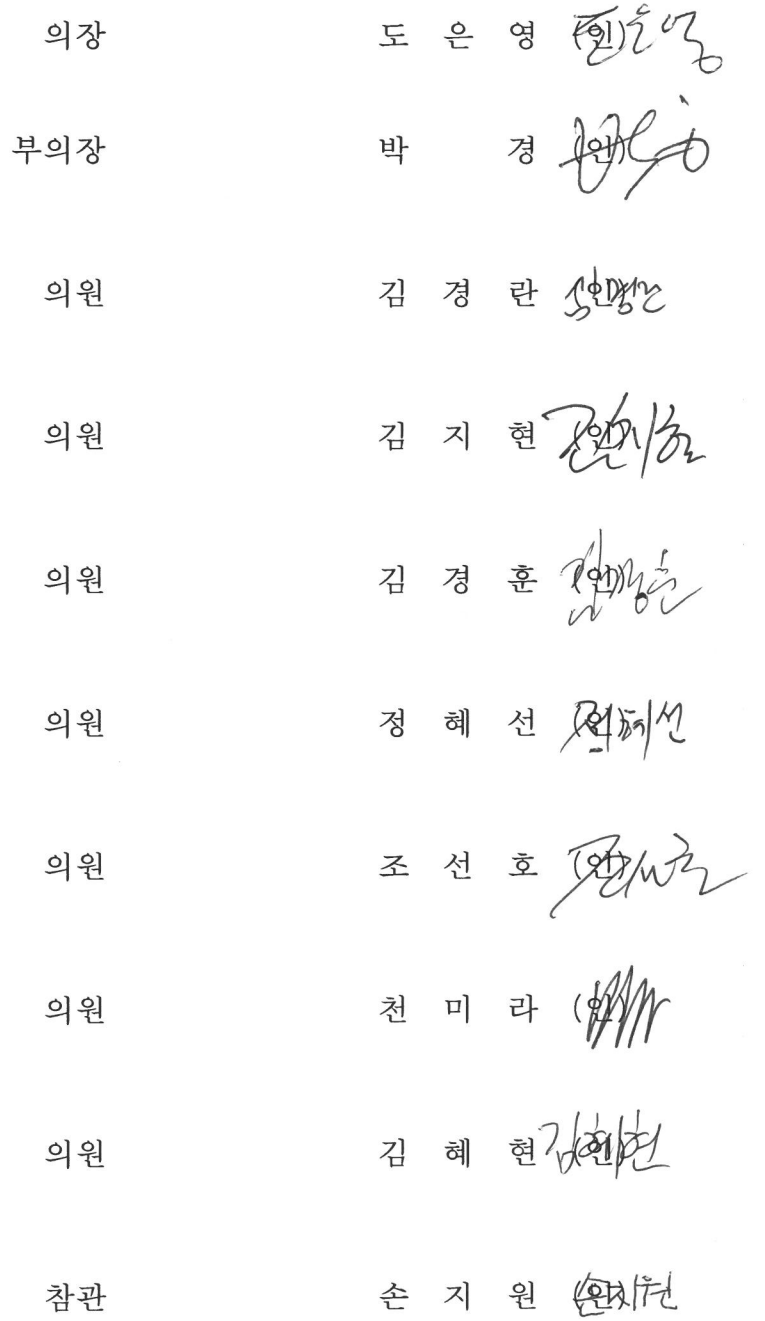 의장 도 은 영 (인)
부의장 박 경 (인)
의원 김 경 란 (인)
의원 김 지 현 (인)
의원 김 경 훈 (인)
의원 정 혜 선 (인)
의원 조 선 호 (인)
의원 천 미 라 (인)
의원 김 혜 현 (인)
참관 손 지 원 (인)